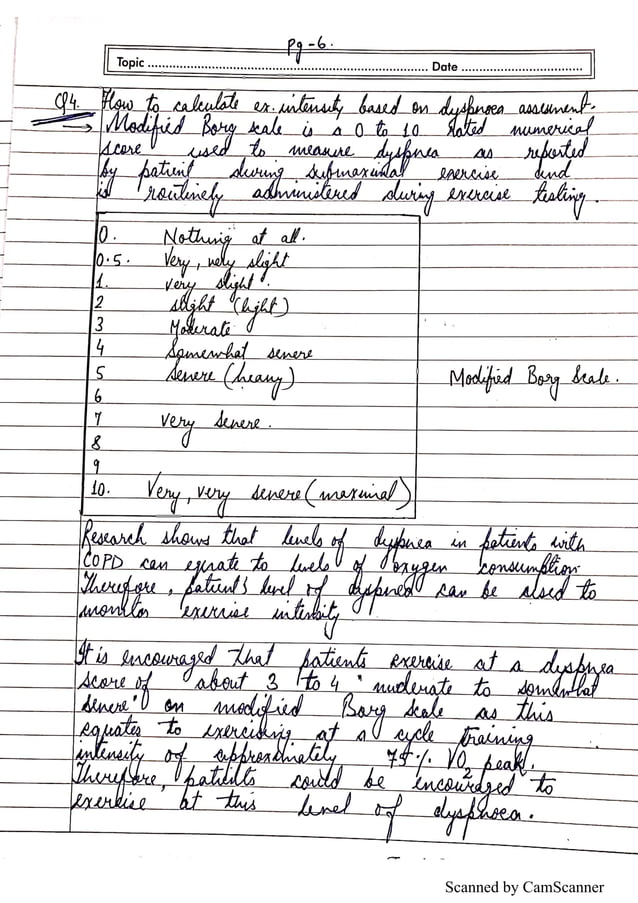 Pg-6.
Topic ........ Date ........
Q4. How to calculate ex. intensity based on dyspnoea assessment.
→ Modified Borg scale is a 0 to 10 rated numerical
score used to measure dyspnea as reported
by patient during submaximal exercise and
is routinely administered during exercise testing.
0. Nothing at all.
0.5. Very, very slight
1. very slight.
2 slight (light)
3 Moderate
4 Somewhat severe
5 Severe (heavy)
Modified Borg Scale.
6
7 very severe.
8
9
10. Very, very severe (maximal)
Research shows that levels of dyspnea in patients with
COPD can equate to levels of oxygen consumption.
Therefore, patient's level of dyspnea can be used to
monitor exercise intensity.
It is encouraged that patients exercise at a dyspnea
score of about 3 to 4 "moderate to somewhat
severe" on modified Borg Scale as this
equates to exercising at a cycle training
intensity of approximately 75% VO2 peak.
Therefore, patients could be encouraged to
exercise at this level of dyspnoea.
Scanned by CamScanner